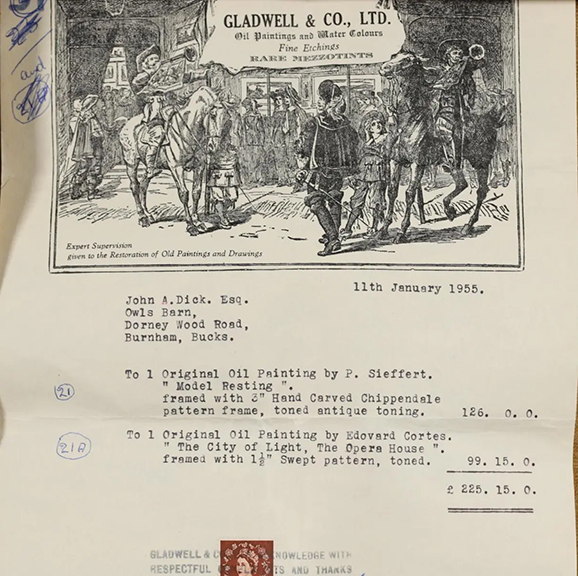 GLADWELL & CO., LTD.
Oil Paintings and Water Colours
Fine Etchings
RARE MEZZOTINTS
and
Expert Supervision
given to the Restoration of Old Paintings and Drawings
11th January 1955.
John A.Dick. Esq.
Owls Barn,
Dorney Wood Road,
Burnham, Bucks.
21
To 1 Original Oil Painting by P. Sieffert.
" Model Resting ".
framed with 3" Hand Carved Chippendale
pattern frame, toned antique toning. 126. 0. 0.
21A
To 1 Original Oil Painting by Edovard Cortes.
" The City of Light, The Opera House ".
framed with 1½" Swept pattern, toned. 99. 15. 0.
£ 225. 15. 0.
GLADWELL & C NOWLEDGE WITH
RESPECTFUL TS AND THANKS